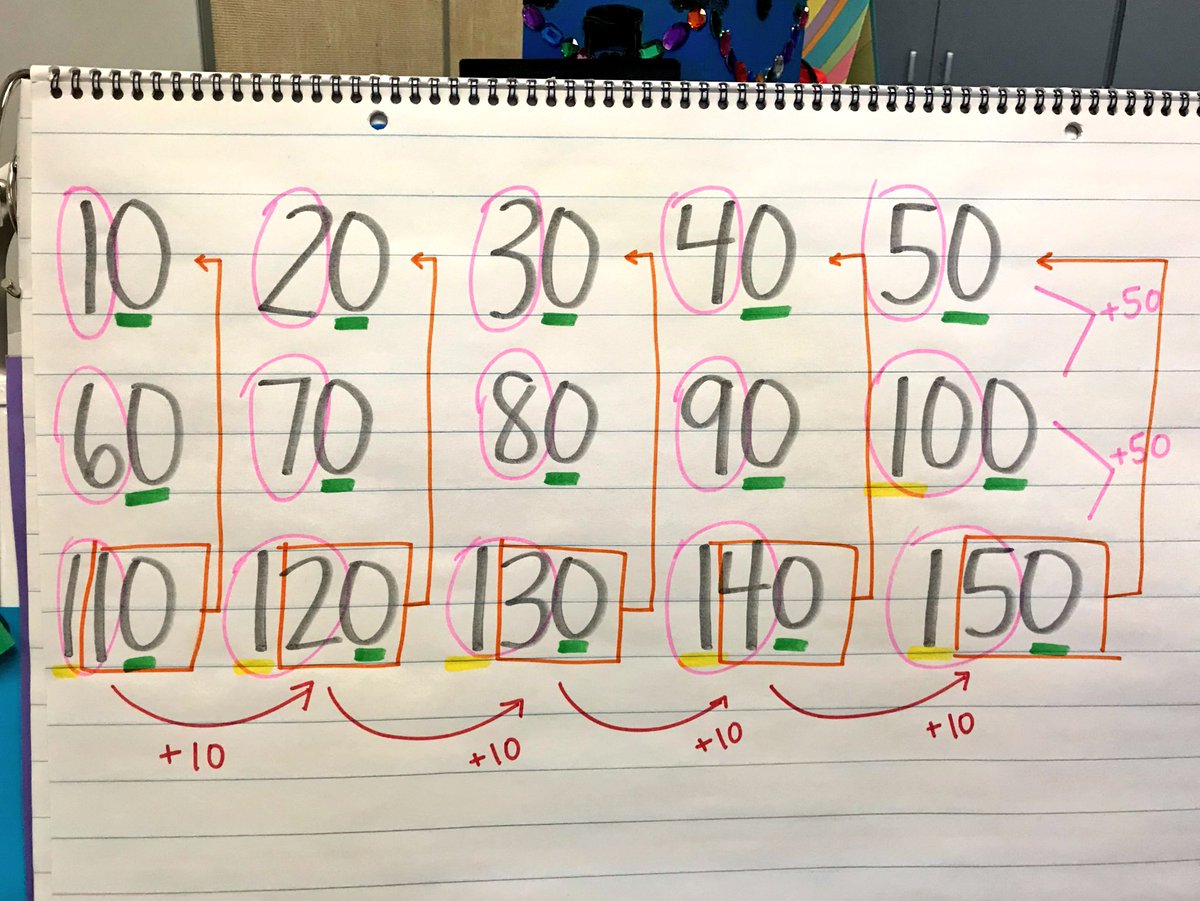 10 20 30 40 50
+50
60 70 80 90 100
+50
110 120 130 140 150
+10 +10 +10 +10